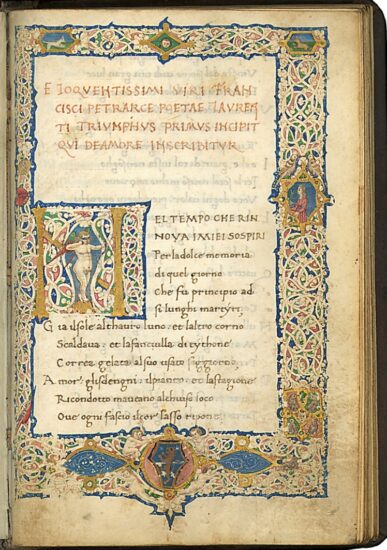 ELOQVENTISSIMI VIRI FRAN
CISCI PETRARCE POETAE LAVREN
TI TRIVMPHVS PRIMVS INCIPIT
QVI DE AMORE INSCRIBITVR
N
EL TEMPO CHE RIN
NOVA IMIEI SOSPIRI
Per la dolce memoria
di quel giorno
Che fu principio ad
si lunghi martyri,
Gia ilsole althauro luno et laltro corno
Scaldava et la fanciulla di tythone
Correa gelata al suo usato soggiorno
Amor gli sdengni ilpianto et la stagione
Ricondotto maueano alchiuso loco
Oue ogni fascio ilcor lasso ripone